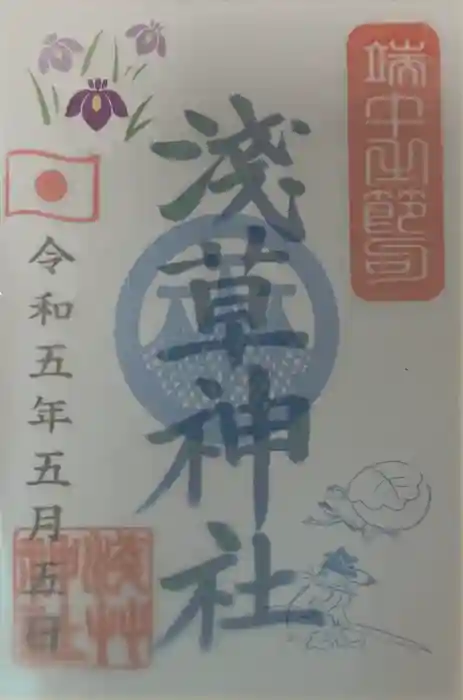 端午之節句
淺草神社
令和五年五月五日
淺艸
神社